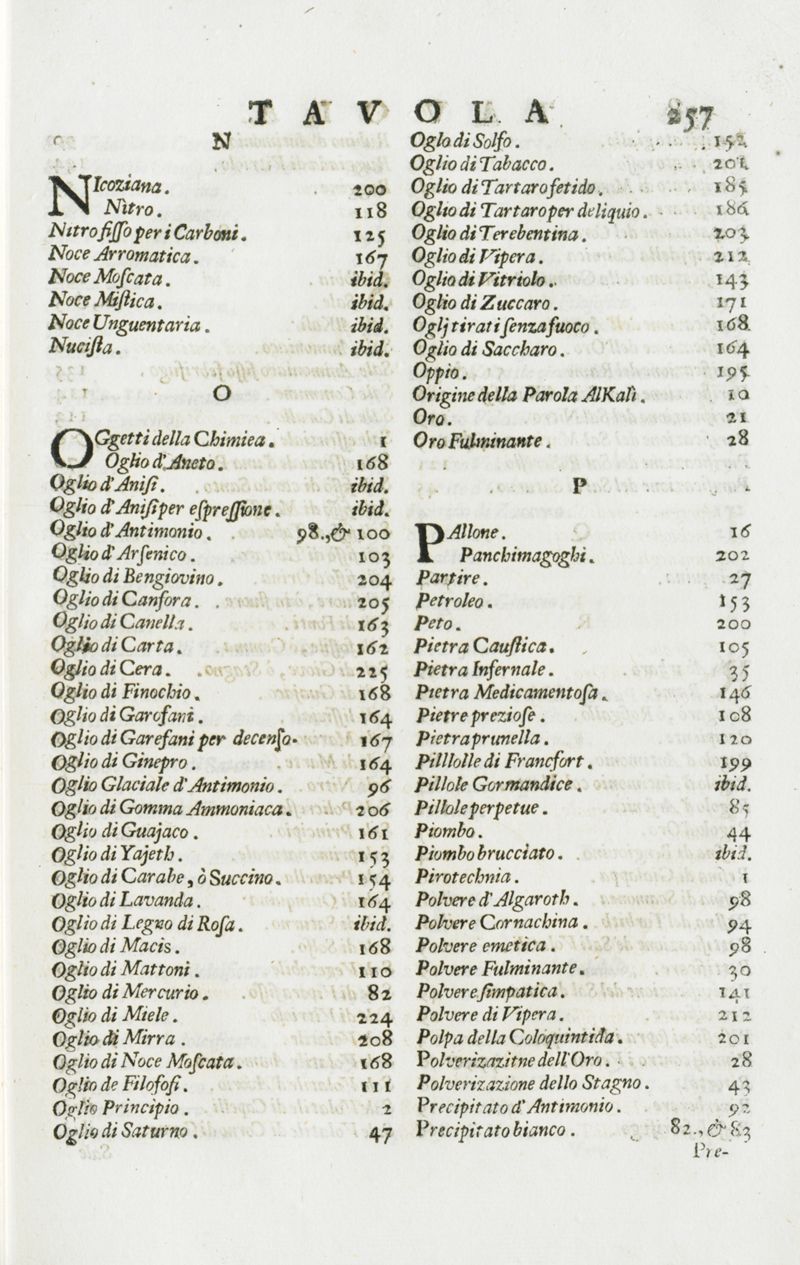 TAVOLA 257
N
NIcoziana. 200
Nitro. 118
Nitro fisso per i Carboni. 125
Noce Arromatica. 167
Noce Moscata. ibid.
Noce Mistica. ibid.
Noce Unguentaria. ibid.
Nucista. ibid.
O
OGgetti della Chimiea. 1
Oglio d'Aneto. 168
Oglio d'Anisi. ibid.
Oglio d'Anisi per espressione. ibid.
Oglio d'Antimonio. 98.,& 100
Oglio d'Arsenico. 103
Oglio di Bengiovino. 204
Oglio di Canfora. 205
Oglio di Canella. 163
Oglio di Carta. 162
Oglio di Cera. 225
Oglio di Finochio. 168
Oglio di Garofani. 164
Oglio di Garefani per decenso. 167
Oglio di Ginepro. 164
Oglio Glaciale d'Antimonio. 96
Oglio di Gomma Ammoniaca. 206
Oglio di Guajaco. 161
Oglio di Yajeth. 153
Oglio di Carabe, ò Succino. 154
Oglio di Lavanda. 164
Oglio di Legno di Rosa. ibid.
Oglio di Macis. 168
Oglio di Mattoni. 110
Oglio di Mercurio. 82
Oglio di Miele. 224
Oglio di Mirra. 208
Oglio di Noce Moscata. 168
Oglio de Filosofi. 111
Oglio Principio. 2
Oglio di Saturno. 47
Oglo di Solfo. 152
Oglio di Tabacco. 201
Oglio di Tartaro fetido. 185
Oglio di Tartaro per deliquio. 186
Oglio di Terebentina. 203
Oglio di Vipera. 212
Oglio di Vitriolo. 143
Oglio di Zuccaro. 171
Oglj tirati senza fuoco. 168
Oglio di Saccharo. 164
Oppio. 195
Origine della Parola AlKalì. 10
Oro. 21
Oro Fulminante. 28
P
PAllone. 16
Panchimagoghi. 202
Partire. 27
Petroleo. 153
Peto. 200
Pietra Caustica. 105
Pietra Infernale. 35
Pietra Medicamentosa. 146
Pietre preziose. 108
Pietra prunella. 120
Pilllolle di Francfort. 199
Pillole Gormandice. ibid.
Pillole perpetue. 85
Piombo. 44
Piombo brucciato. ibid.
Pirotechnia. 1
Polvere d'Algaroth. 98
Polvere Cornachina. 94
Polvere emetica. 98
Polvere Fulminante. 30
Polvere simpatica. 141
Polvere di Vipera. 212
Polpa della Coloquintida. 201
Polverizazitne dell'Oro. 28
Polverizazione dello Stagno. 43
Precipitato d'Antimonio. 92
Precipitato bianco. 82.,& 83
Pre-